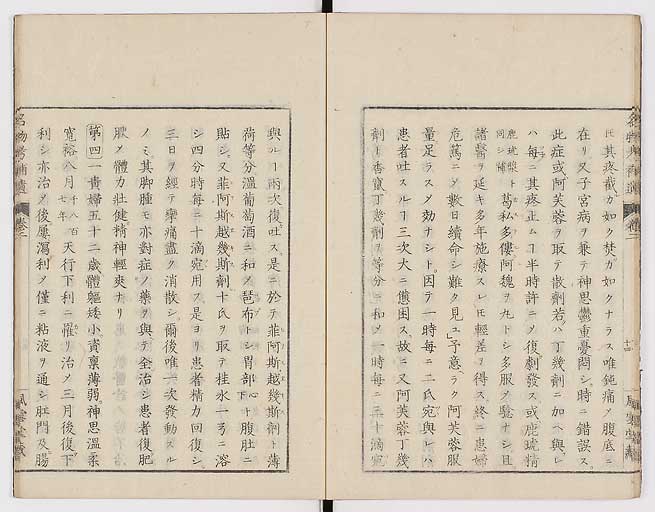 氏其疼戴カ如ク焚カ如クナラス唯鈍痛〆腹底ニ
在リ又子宮病ヲ兼テ神思鬱重憂悶シ時ニ錯誤ス
此症或阿芙蓉ヲ取テ散劑若ハ丁幾劑ニ加ヘ與レ
ハ毎ニ其疼止ムヿ半時許ニ〆復劇發ス或鹿琥精
鹿琥襞ト同シ 葛私多僂阿魏ヲ丸トシ多服〆驗ナシ且
諸醫ヲ延キ多年施療スレモ輕差ヲ得ス終ニ患婦
危篤ニ〆數日續命シ難ク見ユ予意ラク阿芙蓉服
量足ラス〆効ナシト因テ一時毎ニ二氏宛與レハ
患者吐スルヿ三次大ニ憊困ス故ニ又阿芙蓉丁幾
劑ト杏電丁幾劑ヲ等分ニ和〆一時毎ニ三十滴宛
名物考補遺 巻二
風雲堂藏
與ルヿ兩次復吐ス是ニ於テ菲阿斯越幾斯劑ト薄
荷等分溫葡萄酒ニ和〆琶布トシ胃部心下ト腹肚ニ
貼シ又菲阿斯越幾斯劑十氏ヲ取テ桂水一弓ニ溶
シ四分時毎ニ十滴宛用ス是ヨリ患者精力回復シ
三日ヲ經テ攣痛盡ク消散シ爾後唯一次發動スル
ノミ其脚腫モ亦對症ノ藥ヲ與テ全治シ患者復肥
腴〆體力壯健精神輕爽ナリ
第四一貴婦五十二歲體軀矮小資稟薄弱神思溫柔
寬裕八月千八百七年天行下利ニ罹リ治〆三月後復下
利シ亦治〆後屢瀉利〆僅ニ粘液ヲ通シ肛門及腸